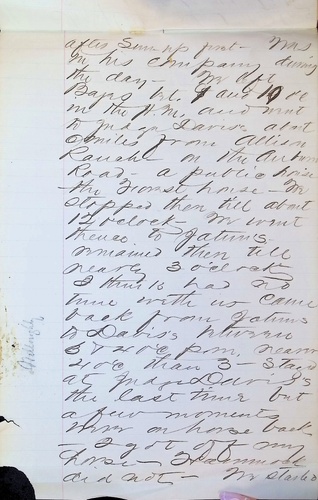 after Sun up first - Was
in his company during
the day - We left
Bags bet. 9 and 10 oc
in the A.M. and went
to Judge Davis's abt
6 miles from Allison
Ranch - on the Auburn
Road - a public house
- the Forest house - We
stopped then till about
12 oclock We went
thence to Tatums -
remained then till
nearly 3 oclock
I think had no
time with us came
back from Tatums
to Davis's between
3 & 4 oc p.m. nearer
4 oc than 3 - Staid
at Judge Davis's
the last time but
a few moments
were on horse back
- I got off my
horse -
did not - We started